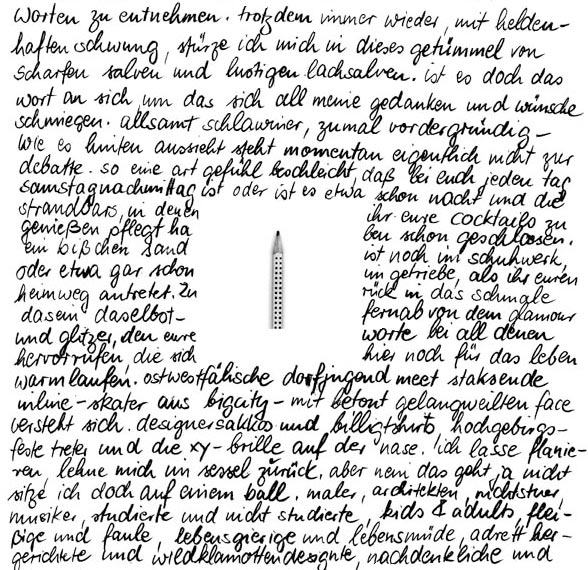 worten zu entnehmen. trotzdem immer wieder, mit helden-
haften schwung, stürze ich mich in dieses getümmel von
scharfen salven und lustigen lachsalven. ist es doch das
wort an sich, um das sich all meine gedanken und wünsche
schmiegen. allsamt schlawiner, zumal vordergründig –
wie es hinten aussieht steht momentan eigentlich nicht zur
debatte. so eine art gefühl beschleicht, daß bei euch jeden tag
samstagnachmittag ist oder ist es etwa schon nacht und die
strandbars, in denen ihr eure cocktails zu
genießen pflegt ha ben schon geschlossen.
ein bißchen sand ist noch im schuhwerk,
oder etwa gar schon im getriebe, als ihr euren
heimweg antretet. zu rück in das schmale
dasein daselbst- fernab von dem glamour
und glitzer, den eure worte bei all denen
hervorrufen, die sich hier noch für das leben
warmlaufen. ostwestfälische dorfjugend meet staksende
inline-skater aus bigcity – mit betont gelangweilten face
versteht sich. designersakko und billigtshirts, hochgebirgs-
feste treter und die xy-brille auf der nase. ich lasse flanie-
ren, lehne mich im sessel zurück, aber nein das geht ja nicht
sitze ich doch auf einem ball. maler, architekten, nichtstuer,
musiker, studierte und nicht studierte, kids & adults, flei-
ßige und faule, lebensgierige und lebensmüde, adrett her-
gerichtete und wildklamottendesignte, nachdenkliche und